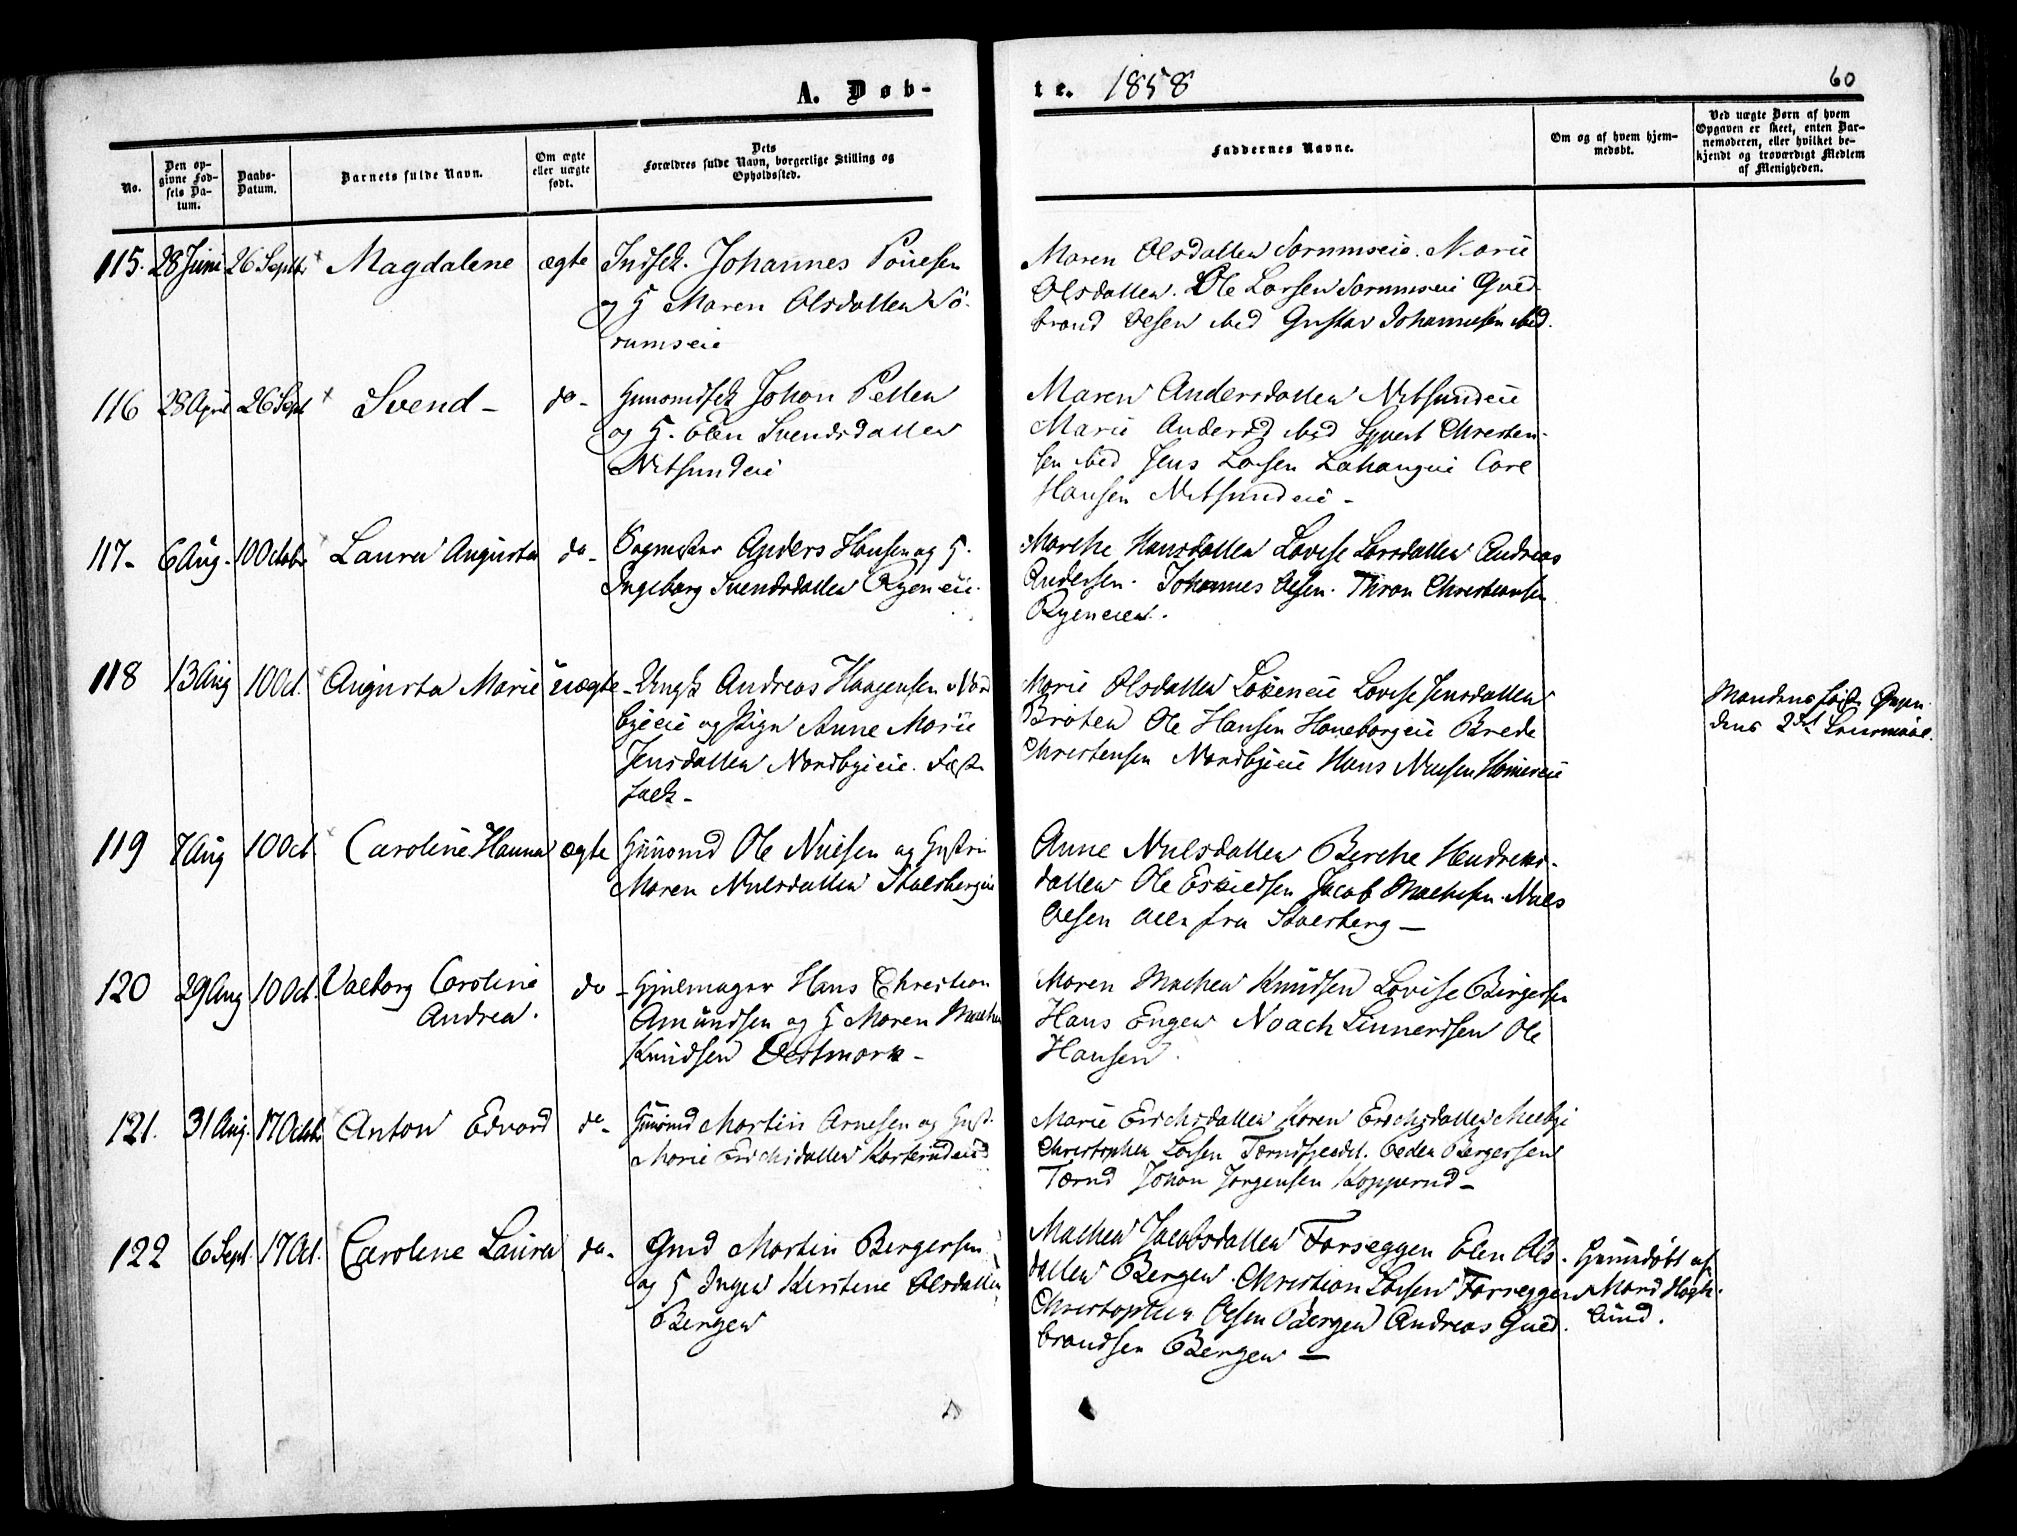 A. Døb-
te. 1858
60
No.
Den op-
givne Fød-
sels Da-
tum.
Daabs-
Datum.
Barnets fulde Navn.
Om ægte
eller uægte
født.
Dets
Forældres fulde Navn, borgerlige Stilling og
Opholdssted.
Faddernes Navne.
Om og af hvem hjem-
medøbt.
Ved uægte Børn af hvem
Opgaven er skeet, enten Bar-
nemoderen, eller hvilket be-
kjendt og troværdigt Medlem
af Menigheden.
115. 28 Juni 26 Septbr Magdalene ægte Johannes
og H Maren Olsdatter Sö-
rumseie
Maren Olsdatter Sörumseie. Marie
Olsdatter. Ole Larsen Sörumseie Guld-
brand Olsen ibid Gustav Johannesen ibid.
116 28 April 26 Sept Svend - do- Johan
og H. Elen Svendsdatter
Nitsundeie
Maren Andersdatter Nitsundeie
Marie Andersd ibid Syvert Christen-
sen ibid Jens Larsen Carl
Hansen Nitsundeie -
117- 6 Aug. 10 Octobr Laura Augusta do- Anders Hansen og H.
Ingeborg Svendsdatter Ryeneie.
Marthe Hansdatter Lovise Larsdatter Andreas
Andersen. Johannes Olsen. Thron Christiansen
Ryeneie.
118 13 Aug 10 Oct. Augusta Marie uægte - Ungk Andreas Haagensen Nord
byeie og Pige Anne Marie
Jensdatter Nordbyeie.
Marie Olsdatter Lökeneie Lovise Jensdatter
Bröten Ole Hansen Haneborgeie Brede
Christensen Nordbyeie Hans Nielsen
Mandens
dens 2det Leiermaal.
119 7 Aug 10 Oct. Caroline Hanna ægte Huusmd Ole Nielsen og Hustru
Maren Nilsdatter Stalsbergeie
Anne Nilsdatter Berthe Hendriks-
datter Ole Eskildsen Jacob Mathisen Niels
Olsen alle fra Stalsberg -
120 29 Aug 10 Oct. Valborg Caroline
Andrea. do - Hjulmager Hans Christian
Amundsen og H Maren Mathea
Knudsen Vestmark -
Maren Mathea Knudsen Lovise Birgersen
Hans Engen Noach Linnertsen Ole
Hansen.
121. 31 Aug. 17 Octobr Anton Edvard do- Huusmd Martin Arnesen og Hust.
Marie Erichsdatter
Marie Erichsdatter Karen Erichsdatter Melbye
Christopher Larsen Peder Bergersen
Tærud Johan Jørgensen Kopperud -
122 6 Sept. 17 Oct. Caroline Laura do- Grmd Martin Bergersen
og H Inger Kirstine Olsdatter
Bergen
Mathea Jacobsdatter Farseggen Elen Ols-
datter Bergen. Christian Larsen Farseggen
Christopher Olsen Bergen Andreas Guld-
brandsen Bergen -
Hjemmedöbt af
Mard Högh-
lund.